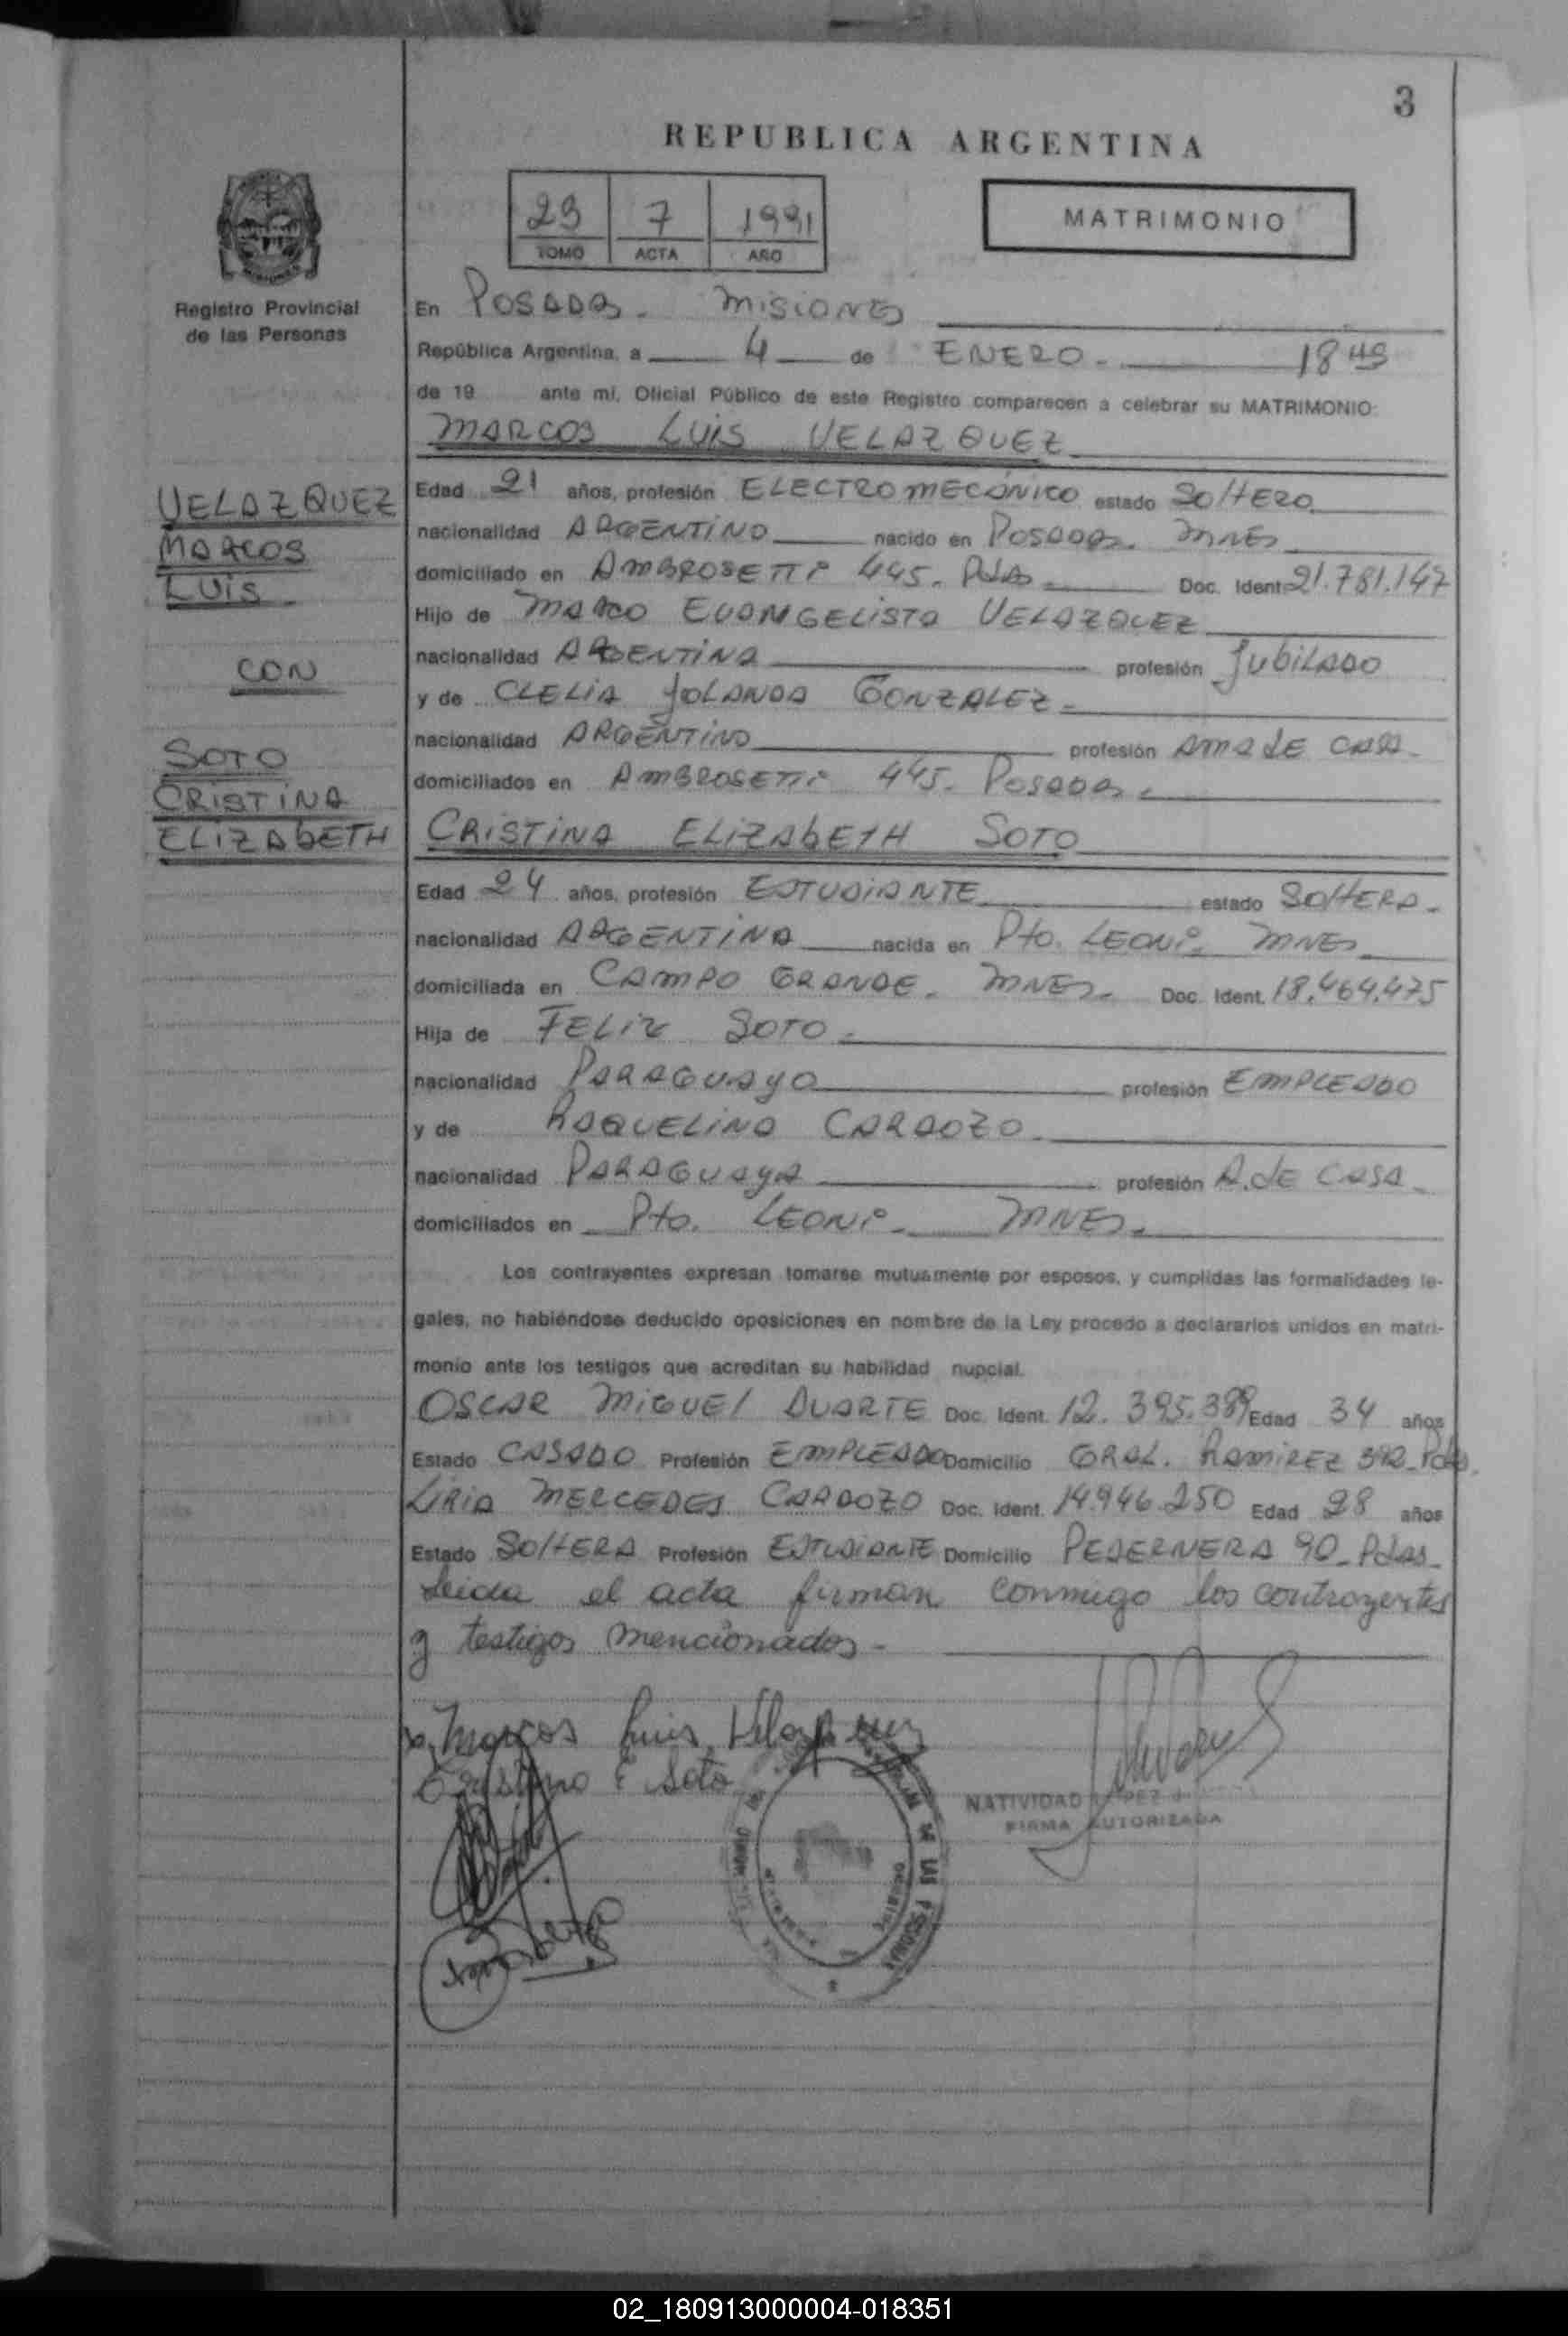 3
REPUBLICA ARGENTINA
23 7 1991
TOMO ACTA AÑO
MATRIMONIO
Registro Provincial
de las Personas
En POSADAS. MISIONES
República Argentina, a 4 de ENERO. 18 45
de 19 ante mi, Oficial Público de este Registro comparecen a celebrar su MATRIMONIO:
MARCOS LUIS VELAZQUEZ
VELAZQUEZ
MARCOS
LUIS
CON
SOTO
CRISTINA
ELIZABETH
Edad 21 años, profesión ELECTROMECÁNICO estado SOLTERO
nacionalidad ARGENTINO nacido en POSADAS. MNES
domiciliado en AMBROSETTI 445. PDAS Doc. Ident. 21.781.147
Hijo de MARCO EVANGELISTA VELAZQUEZ
nacionalidad ARGENTINA profesión JUBILADO
y de CLELIA YOLANDA GONZALEZ.
nacionalidad ARGENTINA profesión AMA DE CASA.
domiciliados en AMBROSETTI 445. POSADAS.
CRISTINA ELIZABETH SOTO
Edad 24 años, profesión ESTUDIANTE estado SOLTERA.
nacionalidad ARGENTINA nacida en Pto. LEONI. MNES
domiciliada en CAMPO GRANDE. MNES. Doc. Ident. 18.464.475
Hija de FELIX SOTO.
nacionalidad PARAGUAYO profesión EMPLEADO
y de RAQUELINA CARDOZO.
nacionalidad PARAGUAYA profesión A. DE CASA.
domiciliados en Pto. LEONI. MNES.
Los contrayentes expresan tomarse mutuamente por esposos, y cumplidas las formalidades le-
gales, no habiéndose deducido oposiciones en nombre de la Ley procedo a declararlos unidos en matri-
monio ante los testigos que acreditan su habilidad nupcial.
OSCAR MIGUEL DUARTE Doc. Ident. 12.395.389 Edad 34 años
Estado CASADO Profesión EMPLEADO Domicilio GRAL. RAMIREZ 392 Pdas.
LIRIA MERCEDES CARDOZO Doc. Ident. 14.946.250 Edad 28 años
Estado SOLTERA Profesión ESTUDIANTE Domicilio PEDERNERA 90. Pdas.
Leida el acta firman conmigo los contrayentes
y testigos mencionados.
Marcos Luis Velazquez
Cristina E Soto
NATIVIDAD
FIRMA AUTORIZADA
DE LAS PERSONAS
02_180913000004-018351